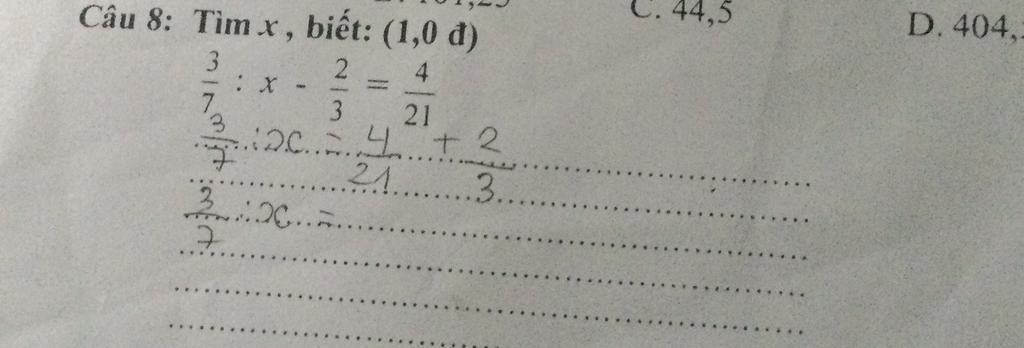 C. 44,5
D. 404,
Câu 8: Tìm x, biết: (1,0 đ)
3/7 : x - 2/3 = 4/21
3/7 : x = 4/21 + 2/3
3/7 : x =